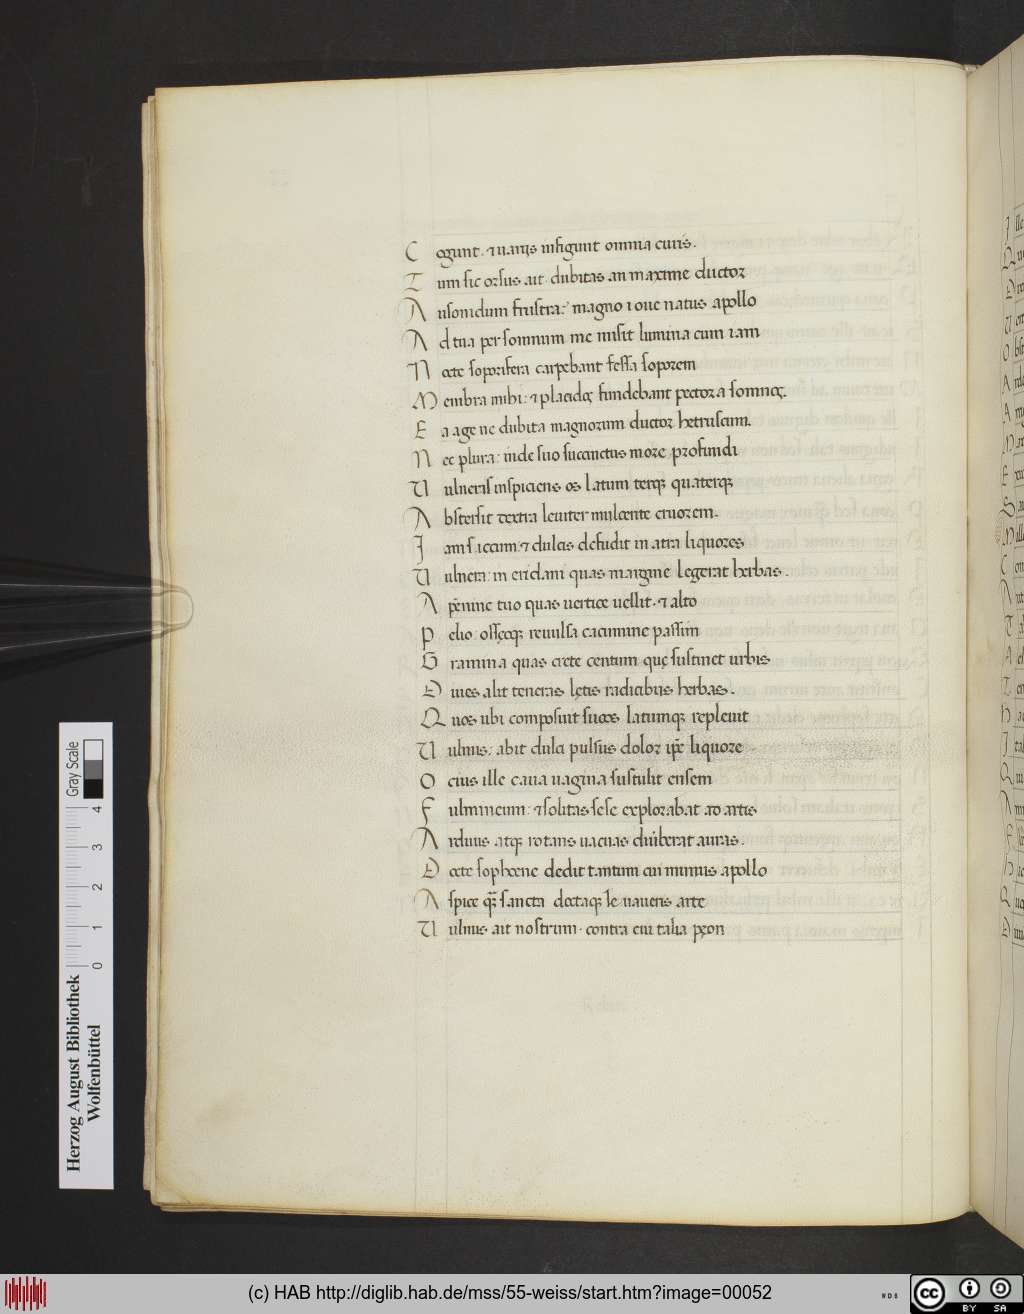 Cogunt. ⁊ uarijs infigunt omnia curis.
Tum sic orsus ait. dubitas an maxime ductor
Ausonidum frustra: magno ioue natus apollo
Ad tua per somnum me misit lumina cum iam
Nocte soporifera carpebant fessa soporem
Membra mihi: ⁊ placidę fundebant pectora somnos.
Ea age ne dubita magnorum ductor hetruscum.
Nec plura: inde suo succinctus more profundi
Uulneris inspiciens os latum terq; quaterq;
Abstersit dextra leuiter mulcente cruorem.
Iam siccum ⁊ dulcis defudit in atra liquores
Uulnera: in eridani quas margine legerat herbas.
Apēnine tuo quas uertice uellit. ⁊ alto
Pelio. ossęq; reuulsa cacumine passim
Gramina quas crete centum quę sustinet urbis
Diues alit teneras lętis radicibus herbas.
Quos ubi composuit sucos latumq; repleuit
Uulnus: abit dula pulsus dolor ip̄e liquore
Ocius ille caua uagina sustulit ensem
Fulmineum: ⁊ solitas sese explorabat ad artis
Arduus atq; rotans uacuas diuiberat auras.
Docte sophocne dedit tantum cui munus apollo
Aspice q̄ȝ sancta doctaq; leuaueris arte
Uulnus ait nostrum. contra cui talia pęon
Herzog August Bibliothek
Wolfenbüttel
0 1 2 3 4
Gray Scale
(c) HAB http://diglib.hab.de/mss/55-weiss/start.htm?image=00052
WDB
cc BY SA